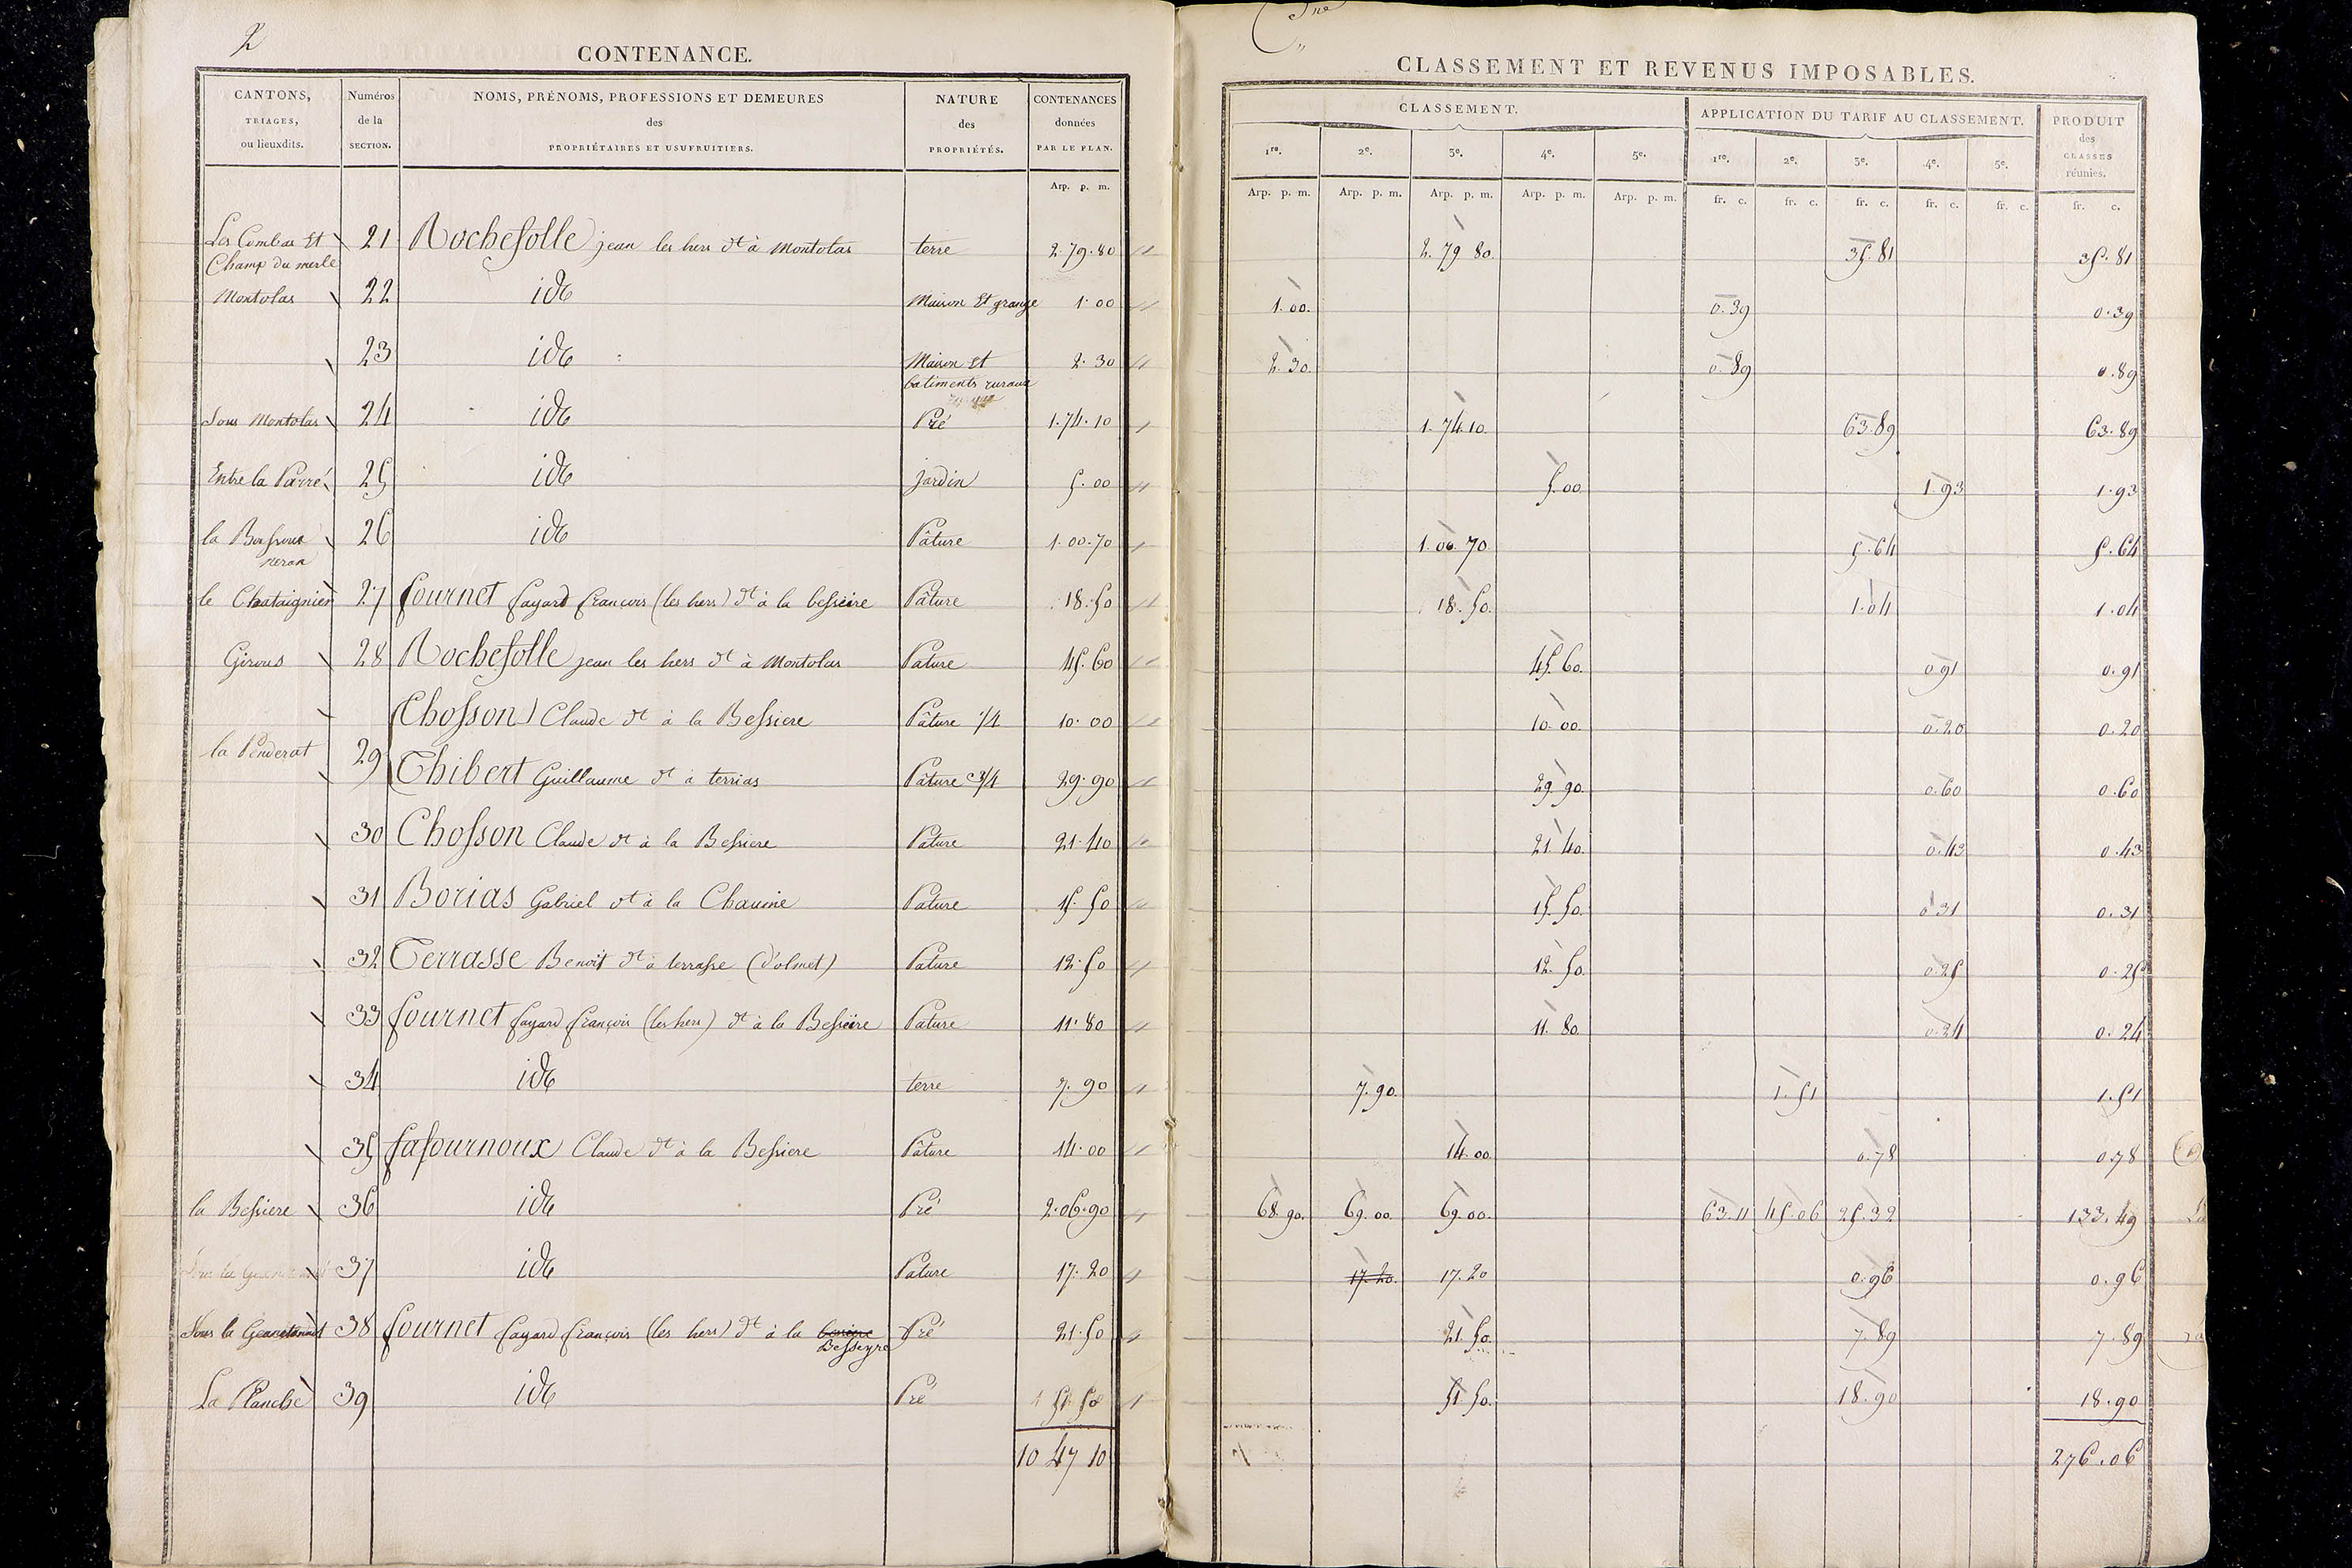 2
CONTENANCE.
CANTONS, TRIAGES, ou lieuxdits. | Numéros de la SECTION. | NOMS, PRÉNOMS, PROFESSIONS ET DEMEURES des PROPRIÉTAIRES ET USUFRUITIERS. | NATURE des PROPRIÉTÉS. | CONTENANCES données PAR LE PLAN.
Arp. p. m.
Les Combas Et Champ du merle | 21 | Rochefolle jean les hers dt à Montolas | terre | 2.79.80
Montolas | 22 | ide | Maison Et grange | 1.00
23 | ide | Maison Et batiments ruraux | 2.30
Sous Montolas | 24 | ide | Pré | 1.74.10
Entre la Parré | 25 | ide | jardin | 5.00
la | 26 | ide | Pâture | 1.00.70
le Chataignier | 27 | fournet fayard francois (les hers) dt à la besseire | Pâture | 18.50
Girous | 28 | Rochefolle jean les hers dt à Montolas | Pature | 45.60
Chosson Claude dt à la Bessiere | Pâture 1/4 | 10.00
la Penderat | 29 | Thibert Guillaume dt à terrias | Pâture 3/4 | 29.90
30 | Chosson Claude dt à la Bessiere | Pature | 21.40
31 | Borias Gabriel dt à la Chaume | Pature | 15.50
32 | Terrasse Benoit dt à terrasse (d'olmet) | Pature | 12.50
33 | fournet fayard françois (les hers) dt à la Besseire | Pature | 11.80
34 | ide | terre | 7.90
35 | fafournoux Claude dt à la Bessiere | Pâture | 14.00
la Bessiere | 36 | ide | Pré | 2.06.90
Sous la | 37 | ide | Pature | 17.20
Sous la | 38 | fournet fayard françois (les hers) dt à la Besseyre | Pré | 21.50
La Planche | 39 | ide | Pré | 51 50
10 47 10
CLASSEMENT ET REVENUS IMPOSABLES.
CLASSEMENT. | APPLICATION DU TARIF AU CLASSEMENT. | PRODUIT des CLASSES réunies.
1re. | 2e. | 3e. | 4e. | 5e. | 1re. | 2e. | 3e. | 4e. | 5e.
Arp. p. m. | Arp. p. m. | Arp. p. m. | Arp. p. m. | Arp. p. m. | fr. c. | fr. c. | fr. c. | fr. c. | fr. c. | fr. c.
2.79 80 | 35.81 | 35.81
1.00. | 0.39 | 0.39
2.30. | 0.89 | 0.89
1.74.10. | 63.89 | 63.89
5.00 | 1.93 | 1.93
1.00.70 | 5.64 | 5.64
18.50. | 1.04 | 1.04
45.60. | 0.91 | 0.91
10.00. | 0.20 | 0.20
29.90. | 0.60 | 0.60
21.40. | 0.43 | 0.43
15.50. | 0.31 | 0.31
12.50. | 0.25 | 0.25
11.80. | 0.24 | 0.24
7.90. | 1.51 | 1.51
14.00. | 0.78 | 0.78
68.90. | 69.00. | 69.00. | 63.11 | 45.06 | 25.32 | 133.49
17.20. | 17.20 | 0.96 | 0.96
21.50. | 7.89 | 7.89
51.50. | 18.90 | 18.90
276.06